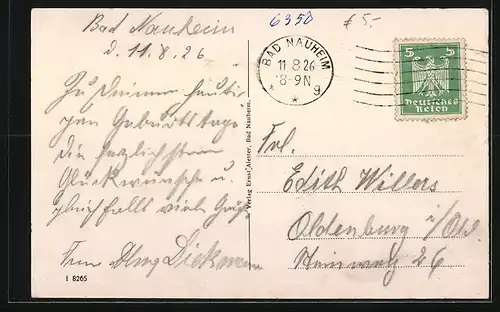 Bad Nauheim
d. 11.8.26
6350
£ 5.-
BAD NAUHEIM
11 8 26
8-9 N
* * 9
5 5
Deutsches
Reich
Zu Deinem heuti-
gen Geburtstage
die herzlichsten
Glückwünsche u.
gleichfalls viele Grüße
Frau Dickmann
Verlag Ernst Aletter, Bad Nauheim.
Frl.
Edith Willers
Oldenburg i/Old.
26
I 8265